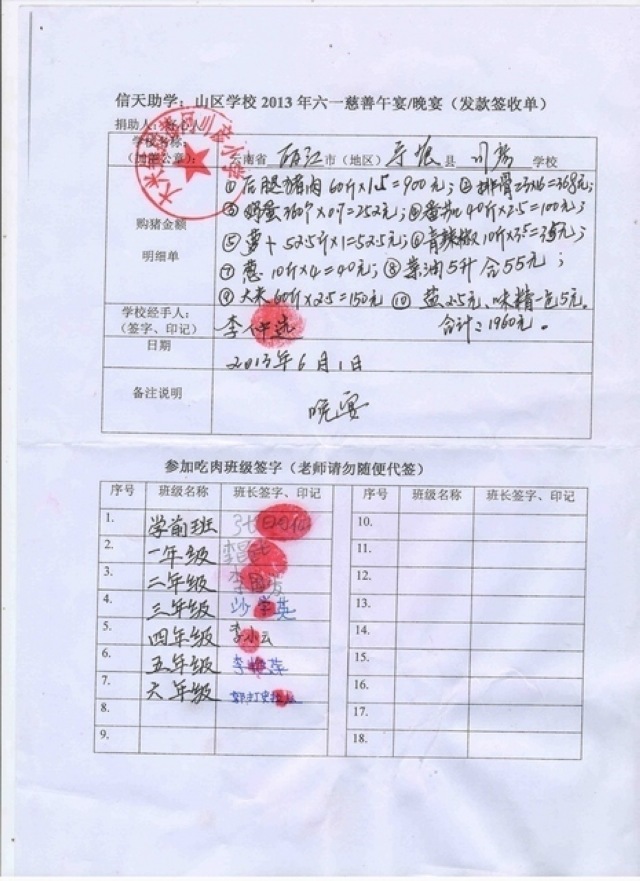 信天助学：山区学校 2013 年六一慈善午宴/晚宴（发款签收单）
捐助人：
学校名称：
云南省 丽江 市（地区） 宁蒗 县 学校
（加盖公章）：
购猪金额
明细单
①后腿猪肉60斤×15=900元；②排骨23×16=368元；
③鸡蛋360个×0.7=252元；④番茄40斤×2.5=100元；
⑤萝卜52.5斤×1=52.5元；⑥青辣椒10斤×3.5=35元；
⑦葱10斤×4=40元；⑧菜油5升合55元；
⑨大米60斤×2.5=150元 ⑩盐2.5元、味精一包5元。
合计：1960元。
学校经手人：
（签字、印记）
李仲选
日期
2013年6月1日
备注说明
晚宴
参加吃肉班级签字（老师请勿随便代签）
序号 班级名称 班长签字、印记 序号 班级名称 班长签字、印记
1. 学前班 10.
2. 一年级 11.
3. 二年级 12.
4. 三年级 沙学英 13.
5. 四年级 李小云 14.
6. 五年级 15.
7. 六年级 16.
8. 17.
9. 18.